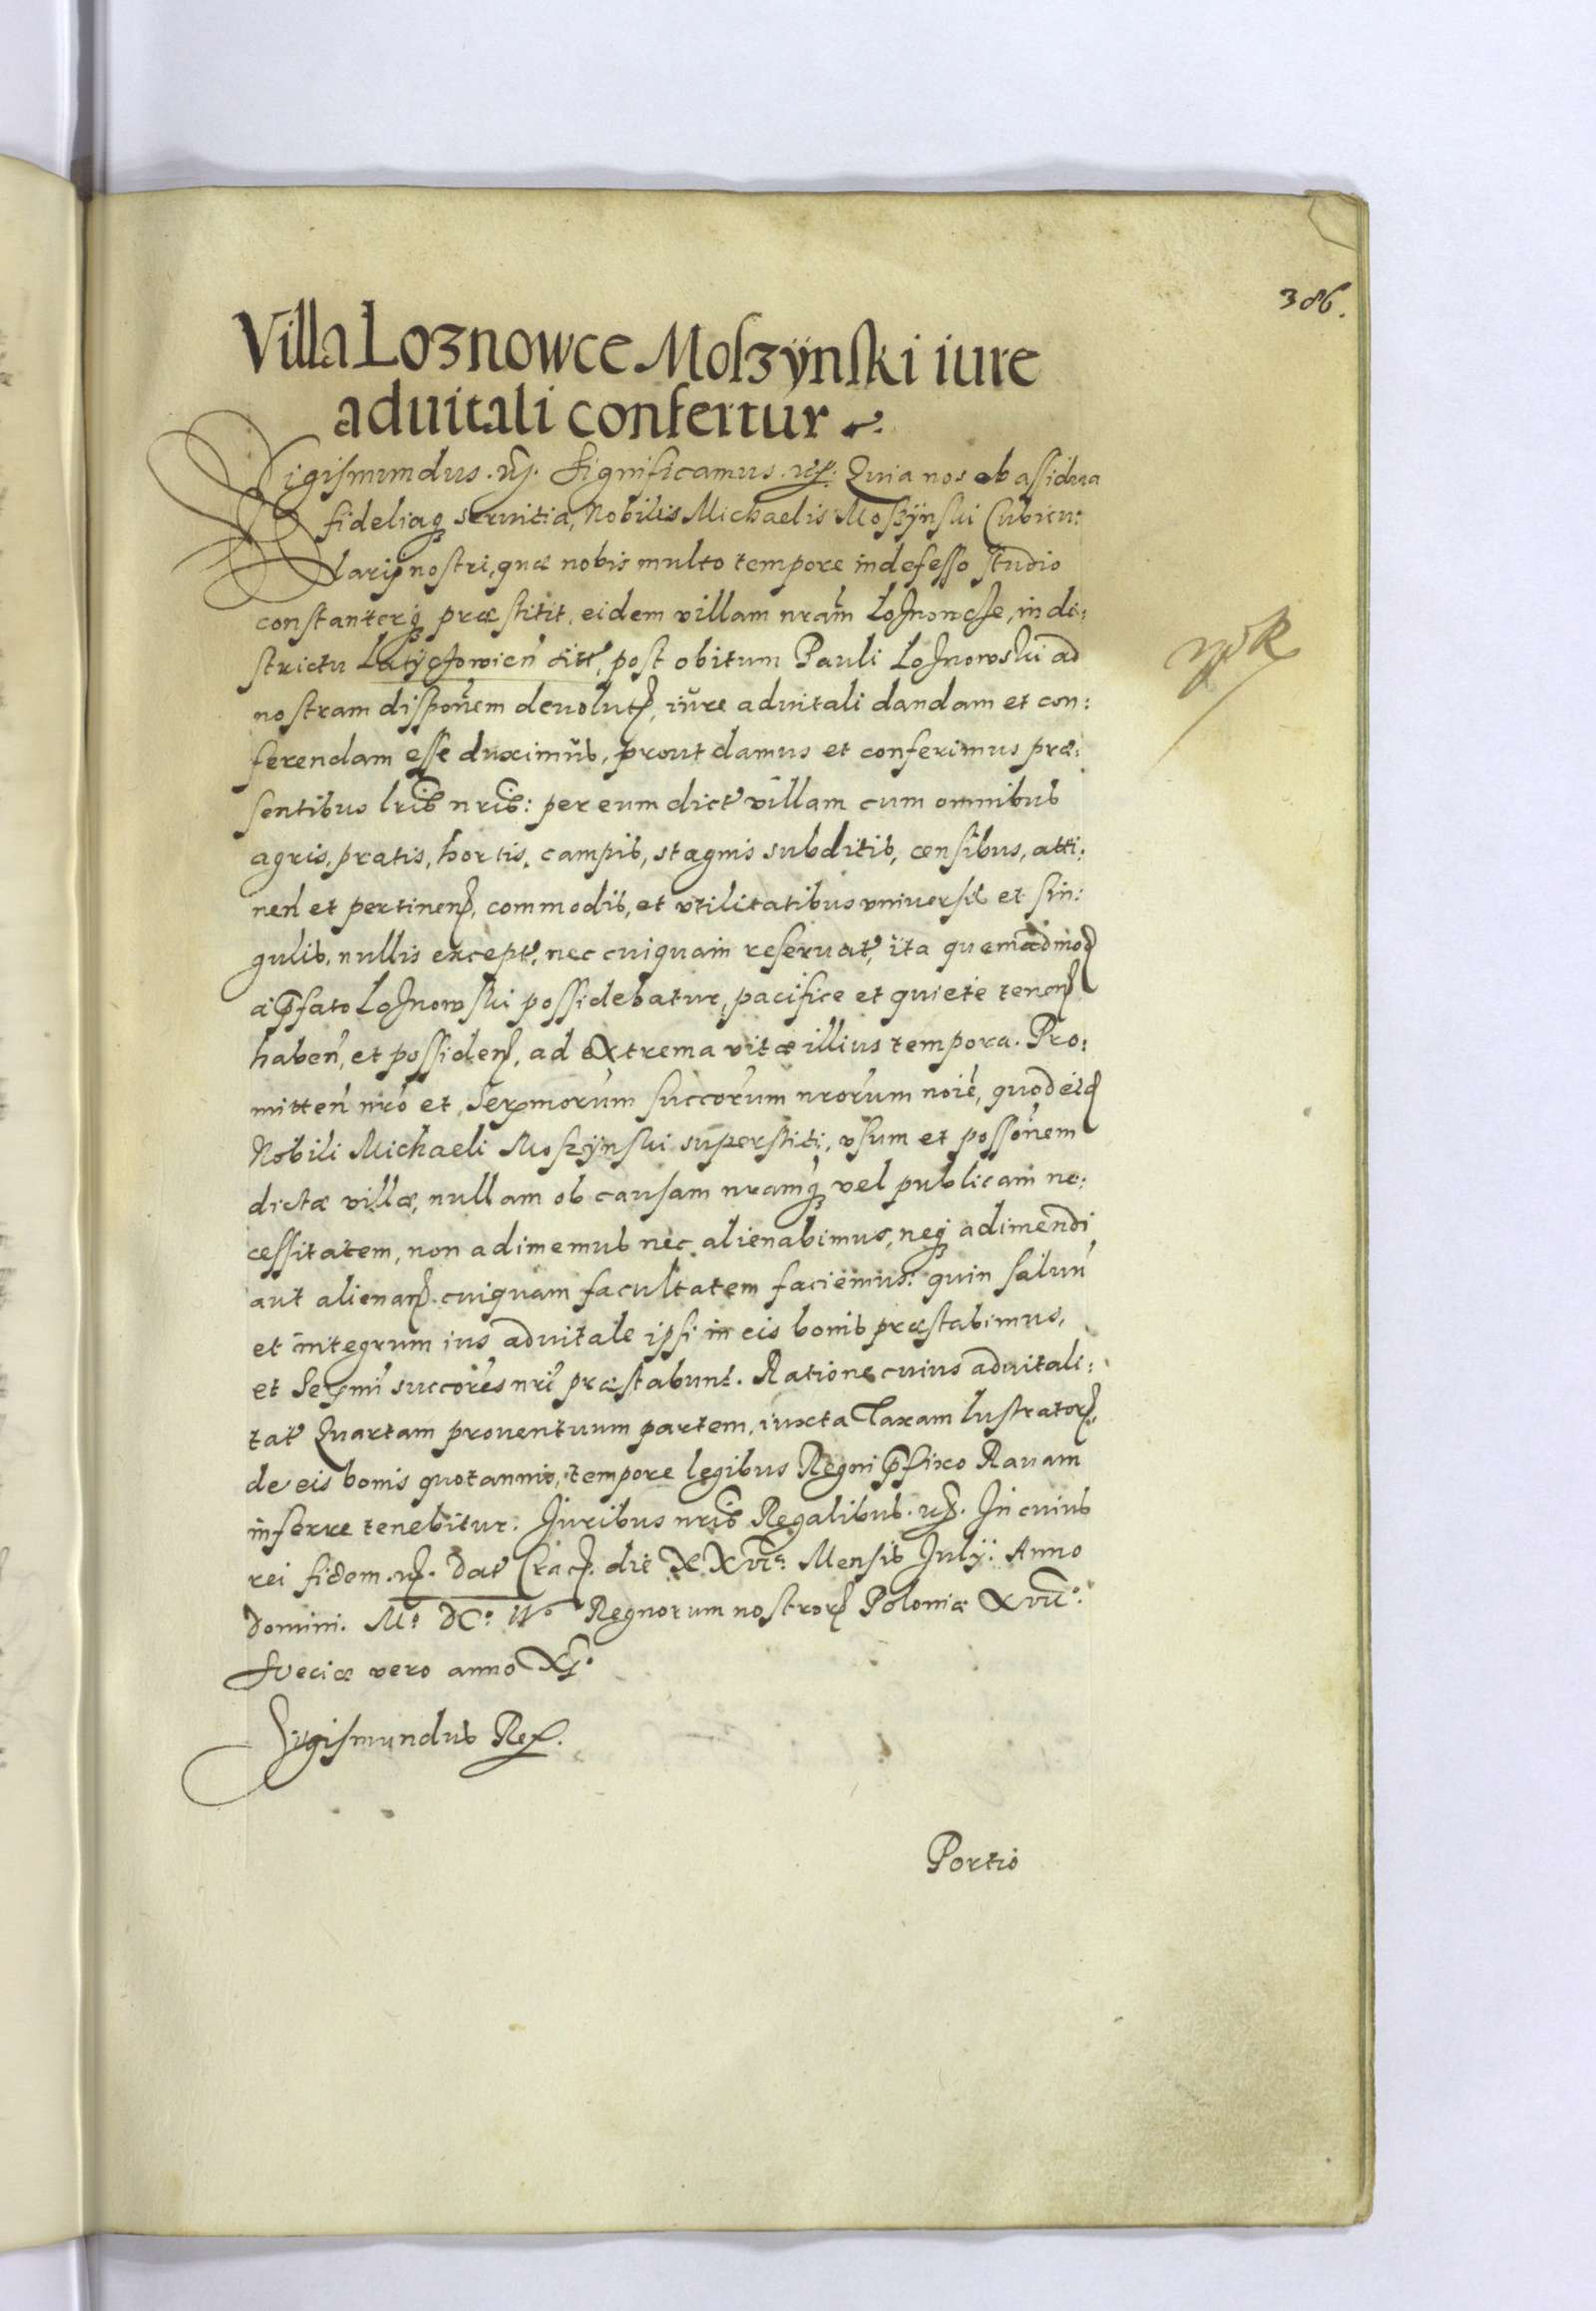 386.
Villa Loznowce Moszÿnski iure
aduitali confertur
Sigismundus. Significamus. Quia nos ob assidua
fideliaq; seruitia, Nobilis Michaelis Moszÿnski Cubicu:
larij nostri, quæ nobis multo tempore indefesso studio
constanterq; præstitit, eidem villam nram̃ Loznowcze, in di:
strictu Latÿczowień sitã, post obitum Pauli Loznowski ad
nostram dispoñem deuolutã, iure aduitali dandam et con:
ferendam esse duximus, prout damus et conferimus præ:
sentibus lrĩs nrĩs: per eum dictã villam cum omnibus
agris, pratis, hortis, campis, stagnis subditis, censibus, atti:
neñ et pertineñ, commodis, et vtilitatibus vniuersis et sin:
gulis, nullis except, nec cuiquam reseruat, ita quemadmod
a pfato Loznowski possidebatur, pacifice et quiete tenen
habeñ, et possiden, ad extrema vitæ illius tempora. Pro:
mitteñ nrõ et Sermorum succorũm nrorũm noiẽ, quod eid
Nobili Michaeli Moszÿnski superstiti, vsum et possoñem
dictæ villæ, nullam ob causam nramq; vel publicam ne:
cessitatem, non adimemus nec alienabimus, neq; adimendi
aut alienan cuiquam facultatem faciemus: quin saluũ
et integrum ius aduitale ipsi in eis bonis præstabimus,
et Sermĩ succorẽs nrĩ præstabunt. Ratione cuius aduitali:
tat Quartam prouentuum partem, iuxta Taxam lustrator
de eis bonis quotannis, tempore legibus Regni pfixo Rauam
inferre tenebitur. Juribus nrĩs Regalibus. In cuius
rei fidem. Dat Crac. die XXVI. Mensis Julÿ. Anno
Domini. Mº DCº IVº Regnorum nostror Poloniæ XVIIº
Sveciæ vero anno XIº
Sigismundus Rex.
Portio